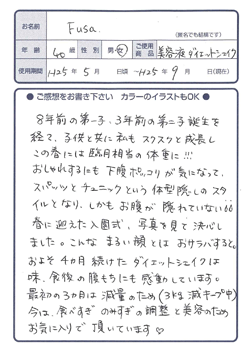 お名前
Fusa.
(匿名でも結構です)
年齢 40歳 性別 男・女 ご使用商品 美容液ダイエットシェイク
使用期間 H25年5月 日頃 ~H25年9月 日(現在)
● ご感想をお書き下さい カラーのイラストもOK ●
8年前の第一子、3年前の第二子誕生を
経て、子供と共に私もスクスクと成長し
この春には臨月相当の体重に!!!
おしゃれするにも下腹ポッコリが気になって、
スパッツとチュニックという体型隠しのスタ
イルとなり、しかもお腹が隠れていない
春に迎えた入園式、写真を見て決心し
ました。こんなまるい顔とはおサラバすると。
およそ4ヵ月続けたダイエットシェイクは
味、食後の腹もちにも感動しています。
最初の3か月は減量のため(3kg減キープ中)
今は、食べすぎのみすぎの調整と美容のため
お気に入りで頂いています♡